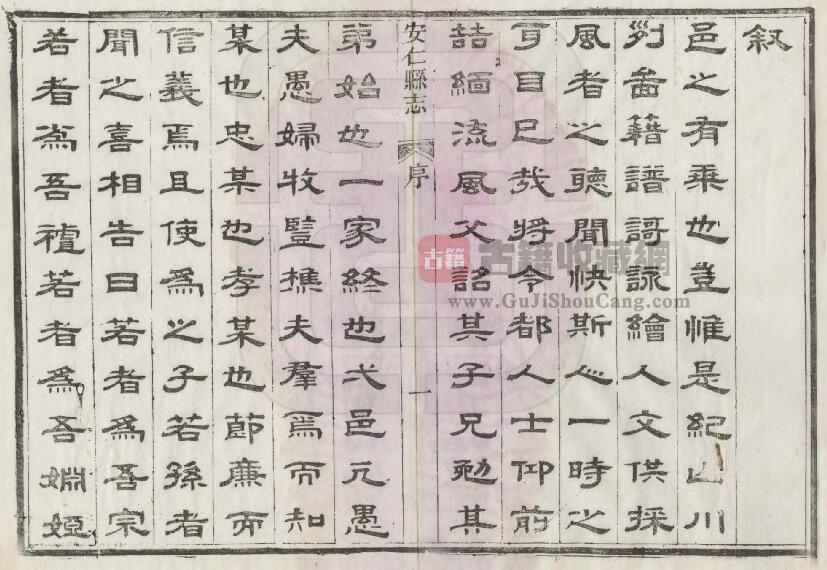 叙
邑之有乘也豈惟是紀山川
列啚籍譜謌詠繪人文供採
風者之聽聞快斯心一時之
耳目已哉將令都人士仰前
喆緬流風父詔其子兄勉其
安仁縣志 序 一
弟始也一家終也弌邑凡愚
夫愚婦牧豎樵夫羣焉而知
某也忠某也孝某也節廉而
信義焉且使為之子若孫者
聞之喜相告曰若者為吾宗
若者為吾若者為吾婣婭
古籍 古籍收藏網
www.GuJiShouCang.com